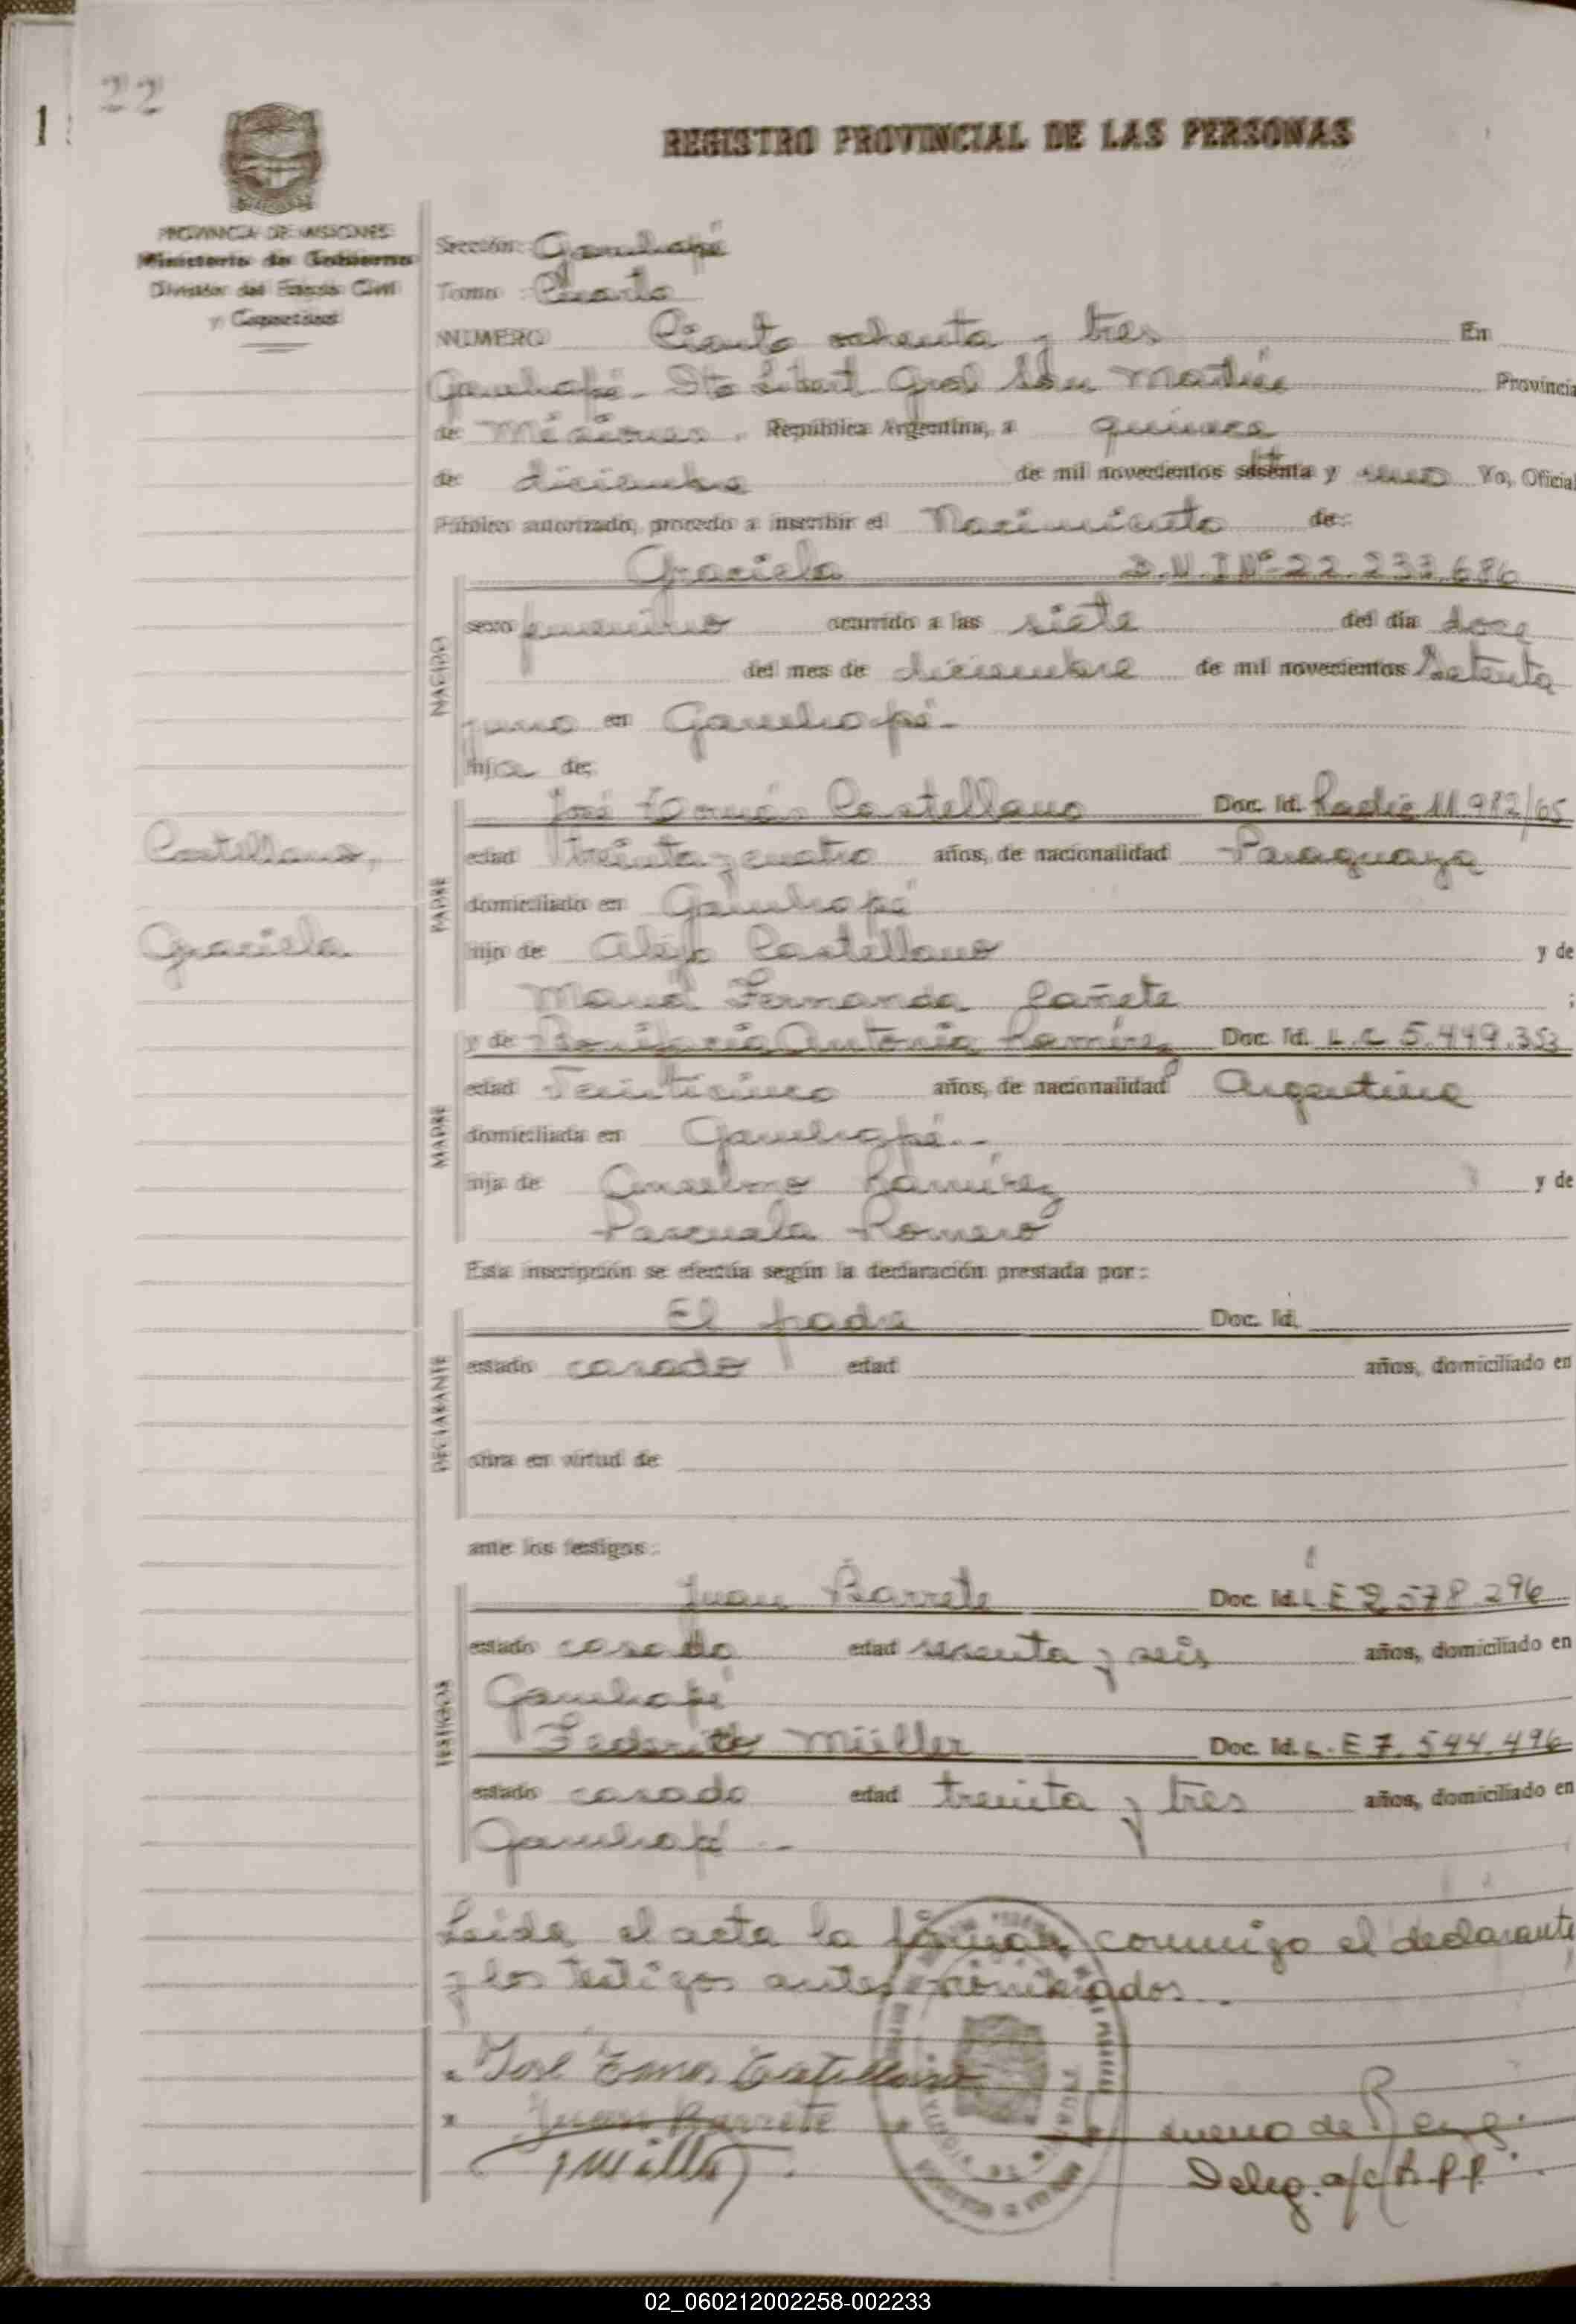 22
1
REGISTRO PROVINCIAL DE LAS PERSONAS
PROVINCIA DE MISIONES
Ministerio de Gobierno
División del Estado Civil
y Capacidad
Sección: Garuhapé
Tomo: Cuarto
NUMERO Ciento ochenta y tres En
Garuhapé. Dto Libert. Gral San Martín Provincia
de Misiones. República Argentina, a quince
de diciembre de mil novecientos setenta y uno Yo, Oficial
Público autorizado, procedo a inscribir el Nacimiento de:
Graciela D.N.I Nº 22.233.686
NACIDO
sexo femenino ocurrido a las siete del día doce
del mes de diciembre de mil novecientos setenta
y uno en Garuhapé-
hija de:
PADRE
José Tomás Castellano Doc. Id. Radic 11.982/65
edad treinta y cuatro años, de nacionalidad Paraguaya
domiciliado en Garuhapé
hijo de Alejo Castellano y de
María Fernanda Cañete ;
Castellano,
Graciela
MADRE
y de Bonifacia Antonia Ramírez Doc. Id. L.C 5.449.353
edad Veinticinco años, de nacionalidad Argentina
domiciliada en Garuhapé.-
hija de Anselmo Ramírez y de
Pascuala Romero
Esta inscripción se efectúa según la declaración prestada por:
DECLARANTE
El padre Doc. Id.
estado casado edad años, domiciliado en
obra en virtud de
ante los testigos:
TESTIGOS
Juan Barrete Doc. Id. L E 2.578.296
estado casado edad sesenta y seis años, domiciliado en
Garuhapé
Federico Müller Doc. Id. L.E 7.544.496
estado casado edad treinta y tres años, domiciliado en
Garuhapé.-
Leída el acta la firman conmigo el declarante
y los testigos antes nominados.-
José Castellano
Juan Barrete
de
Deleg. a/c R.P.P.
02_060212002258-002233